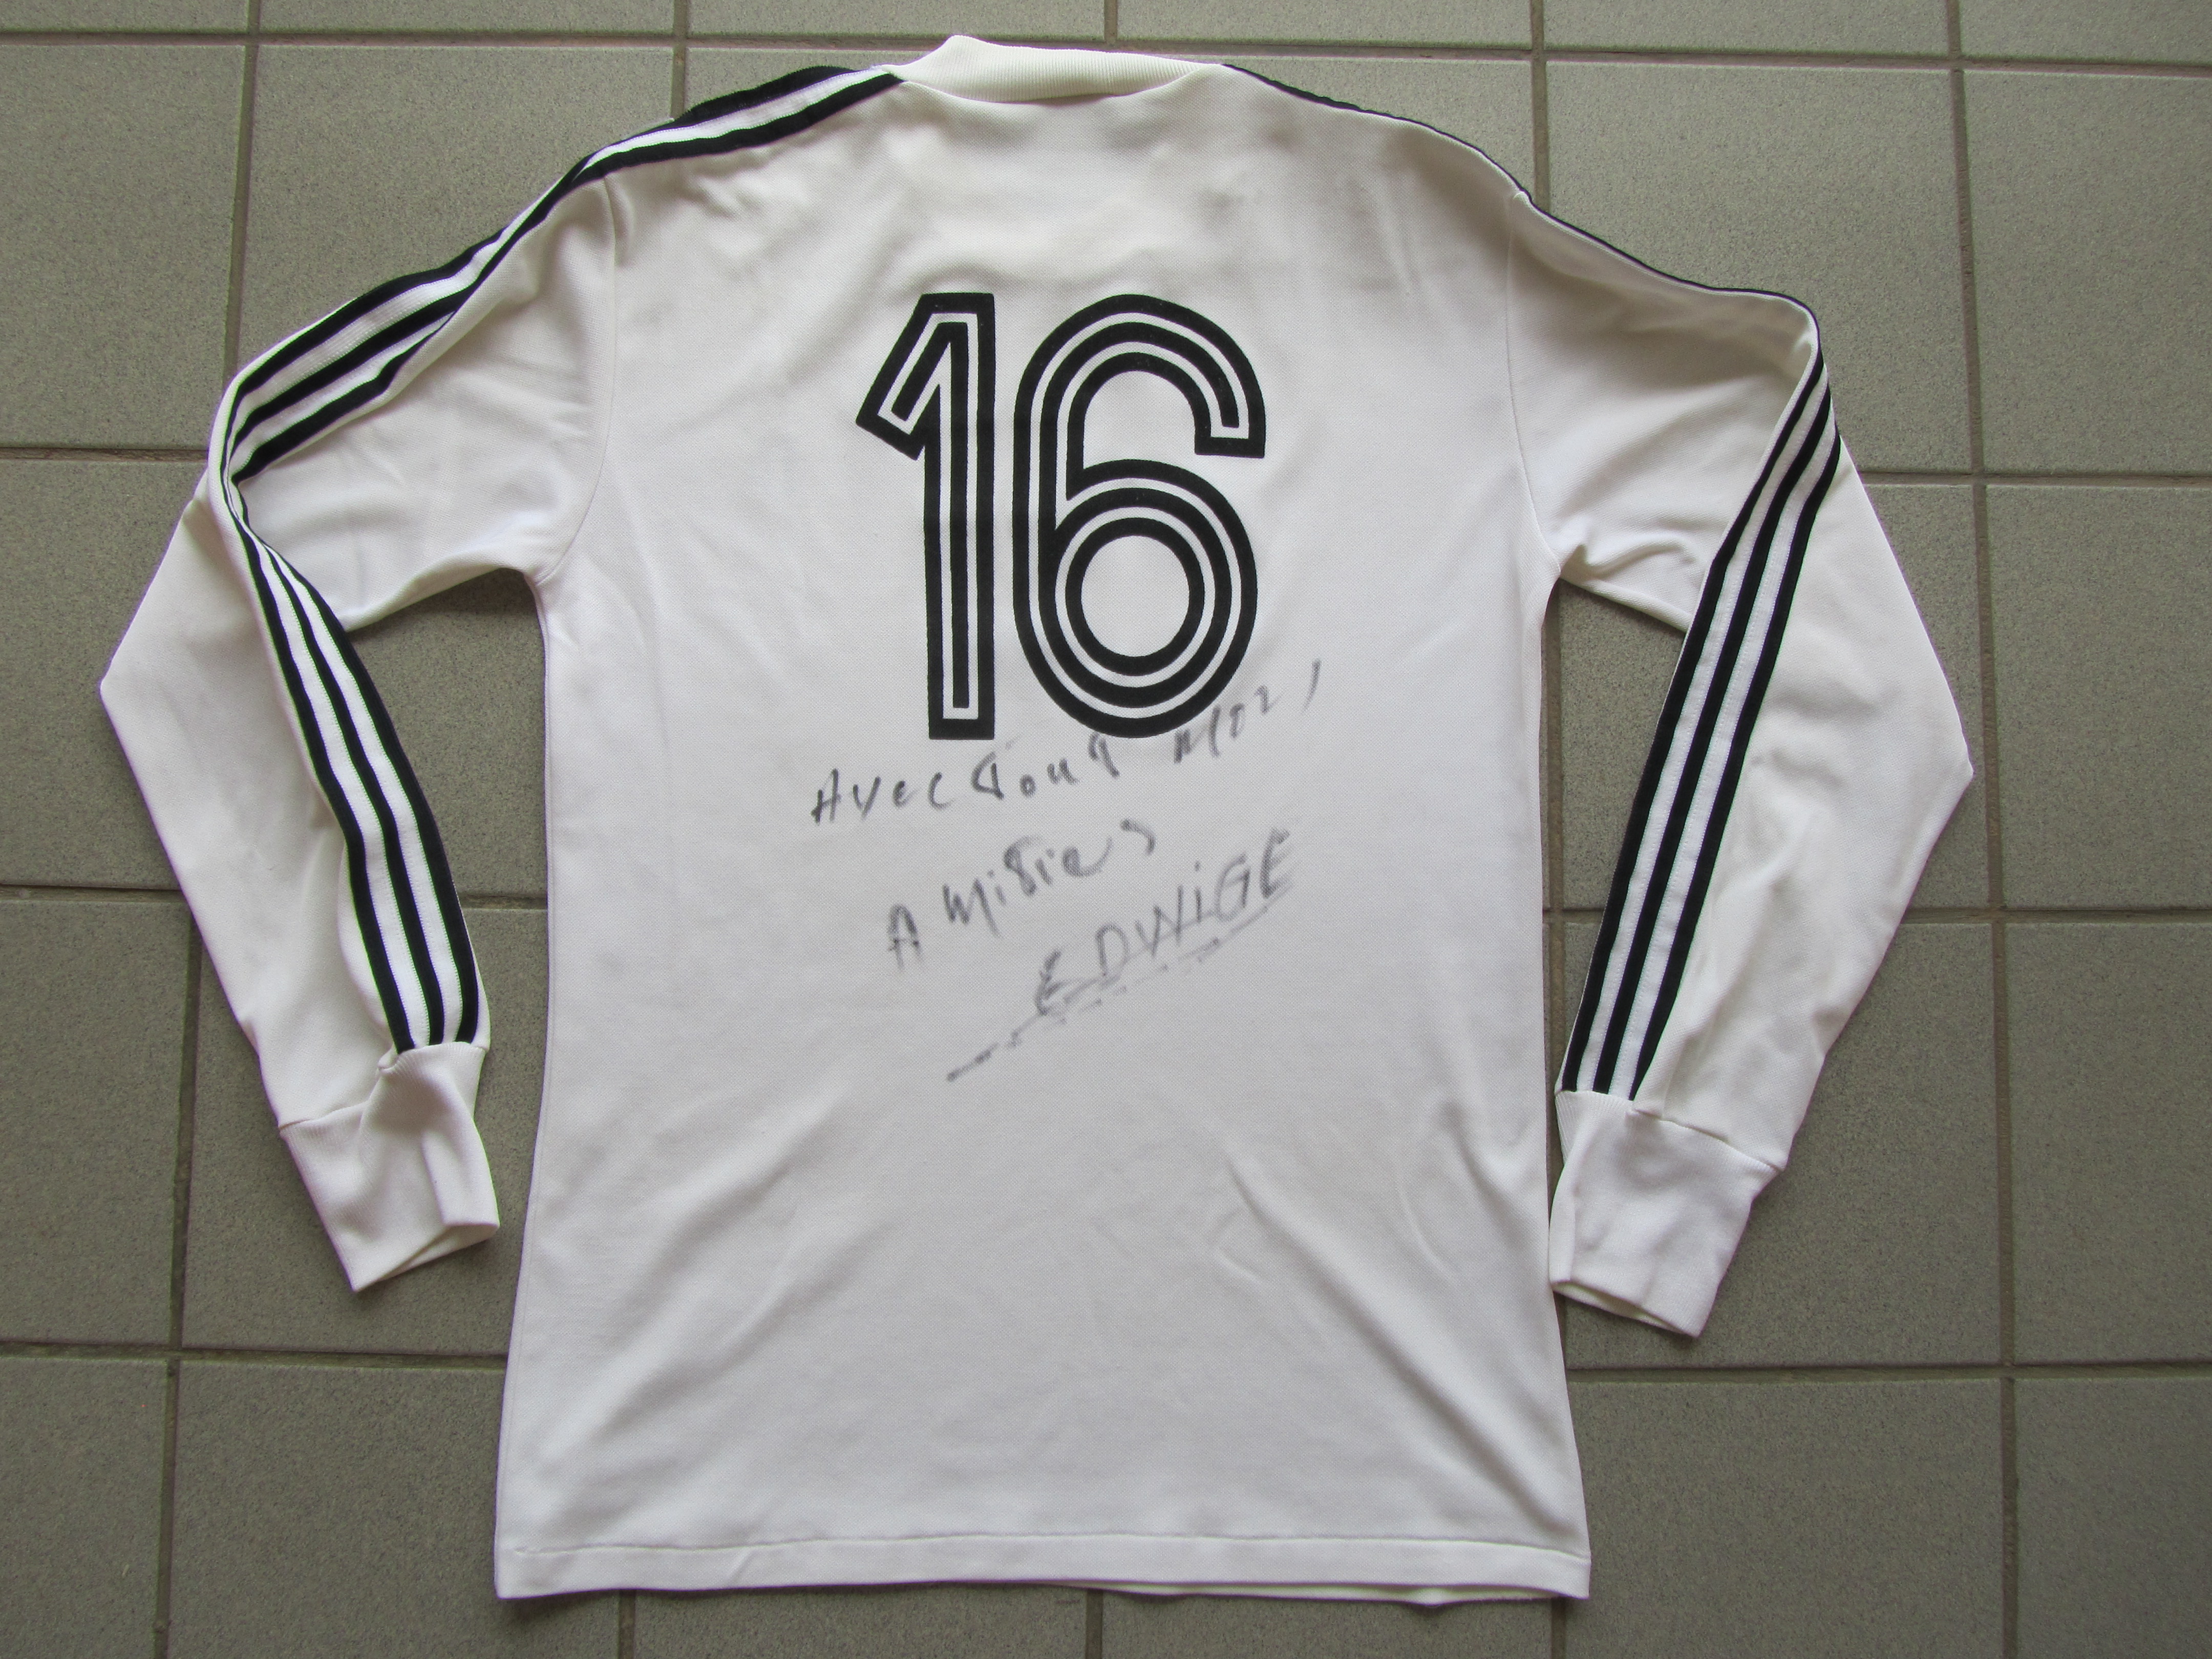 16
Avec Tout Moi,
Amitiés
EDWIGE